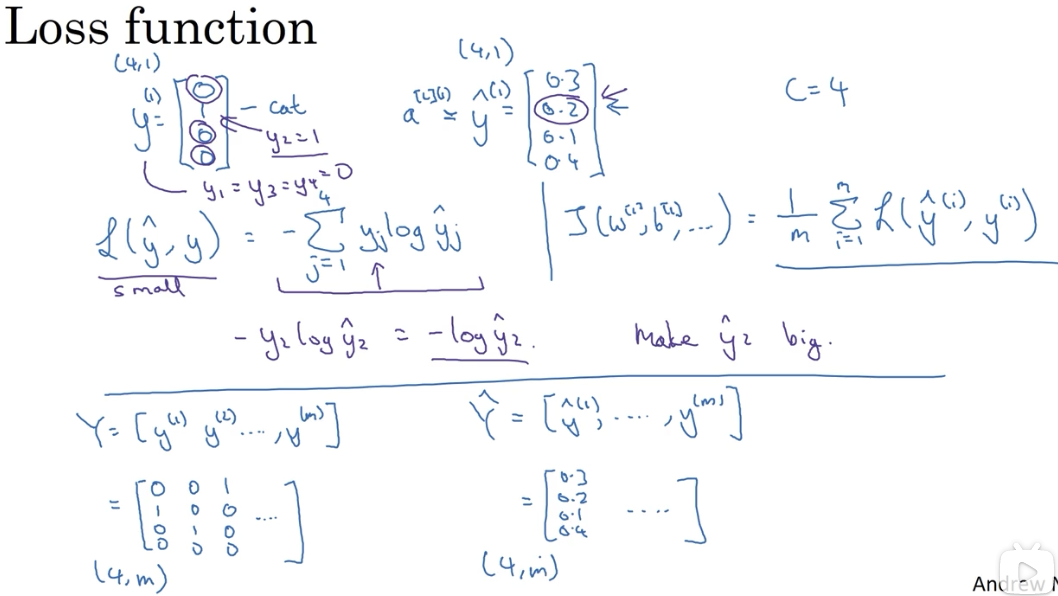 Loss function
(4,1)
y^{(1)} = [0 1 0 0] - cat
y_2 = 1
y_1 = y_3 = y_4 = 0
(4,1)
a^{[L](1)} ≃ ŷ^{(1)} = [0.3 0.2 0.1 0.4]
C = 4
L(ŷ, y) = - ∑_{j=1}^{4} y_j log ŷ_j
small
J(w^{[1]}, b^{[1]}, ...) = 1/m ∑_{i=1}^{m} L(ŷ^{(i)}, y^{(i)})
- y_2 log ŷ_2 = - log ŷ_2. Make ŷ_2 big.
Y = [y^{(1)} y^{(2)} ...., y^{(m)}]
= [0 0 1
1 0 0 ....
0 1 0
0 0 0]
(4, m)
Ŷ = [ŷ^{(1)}, ...., y^{(m)}]
= [0.3
0.2 ....
0.1
0.4]
(4, m)
Andrew N